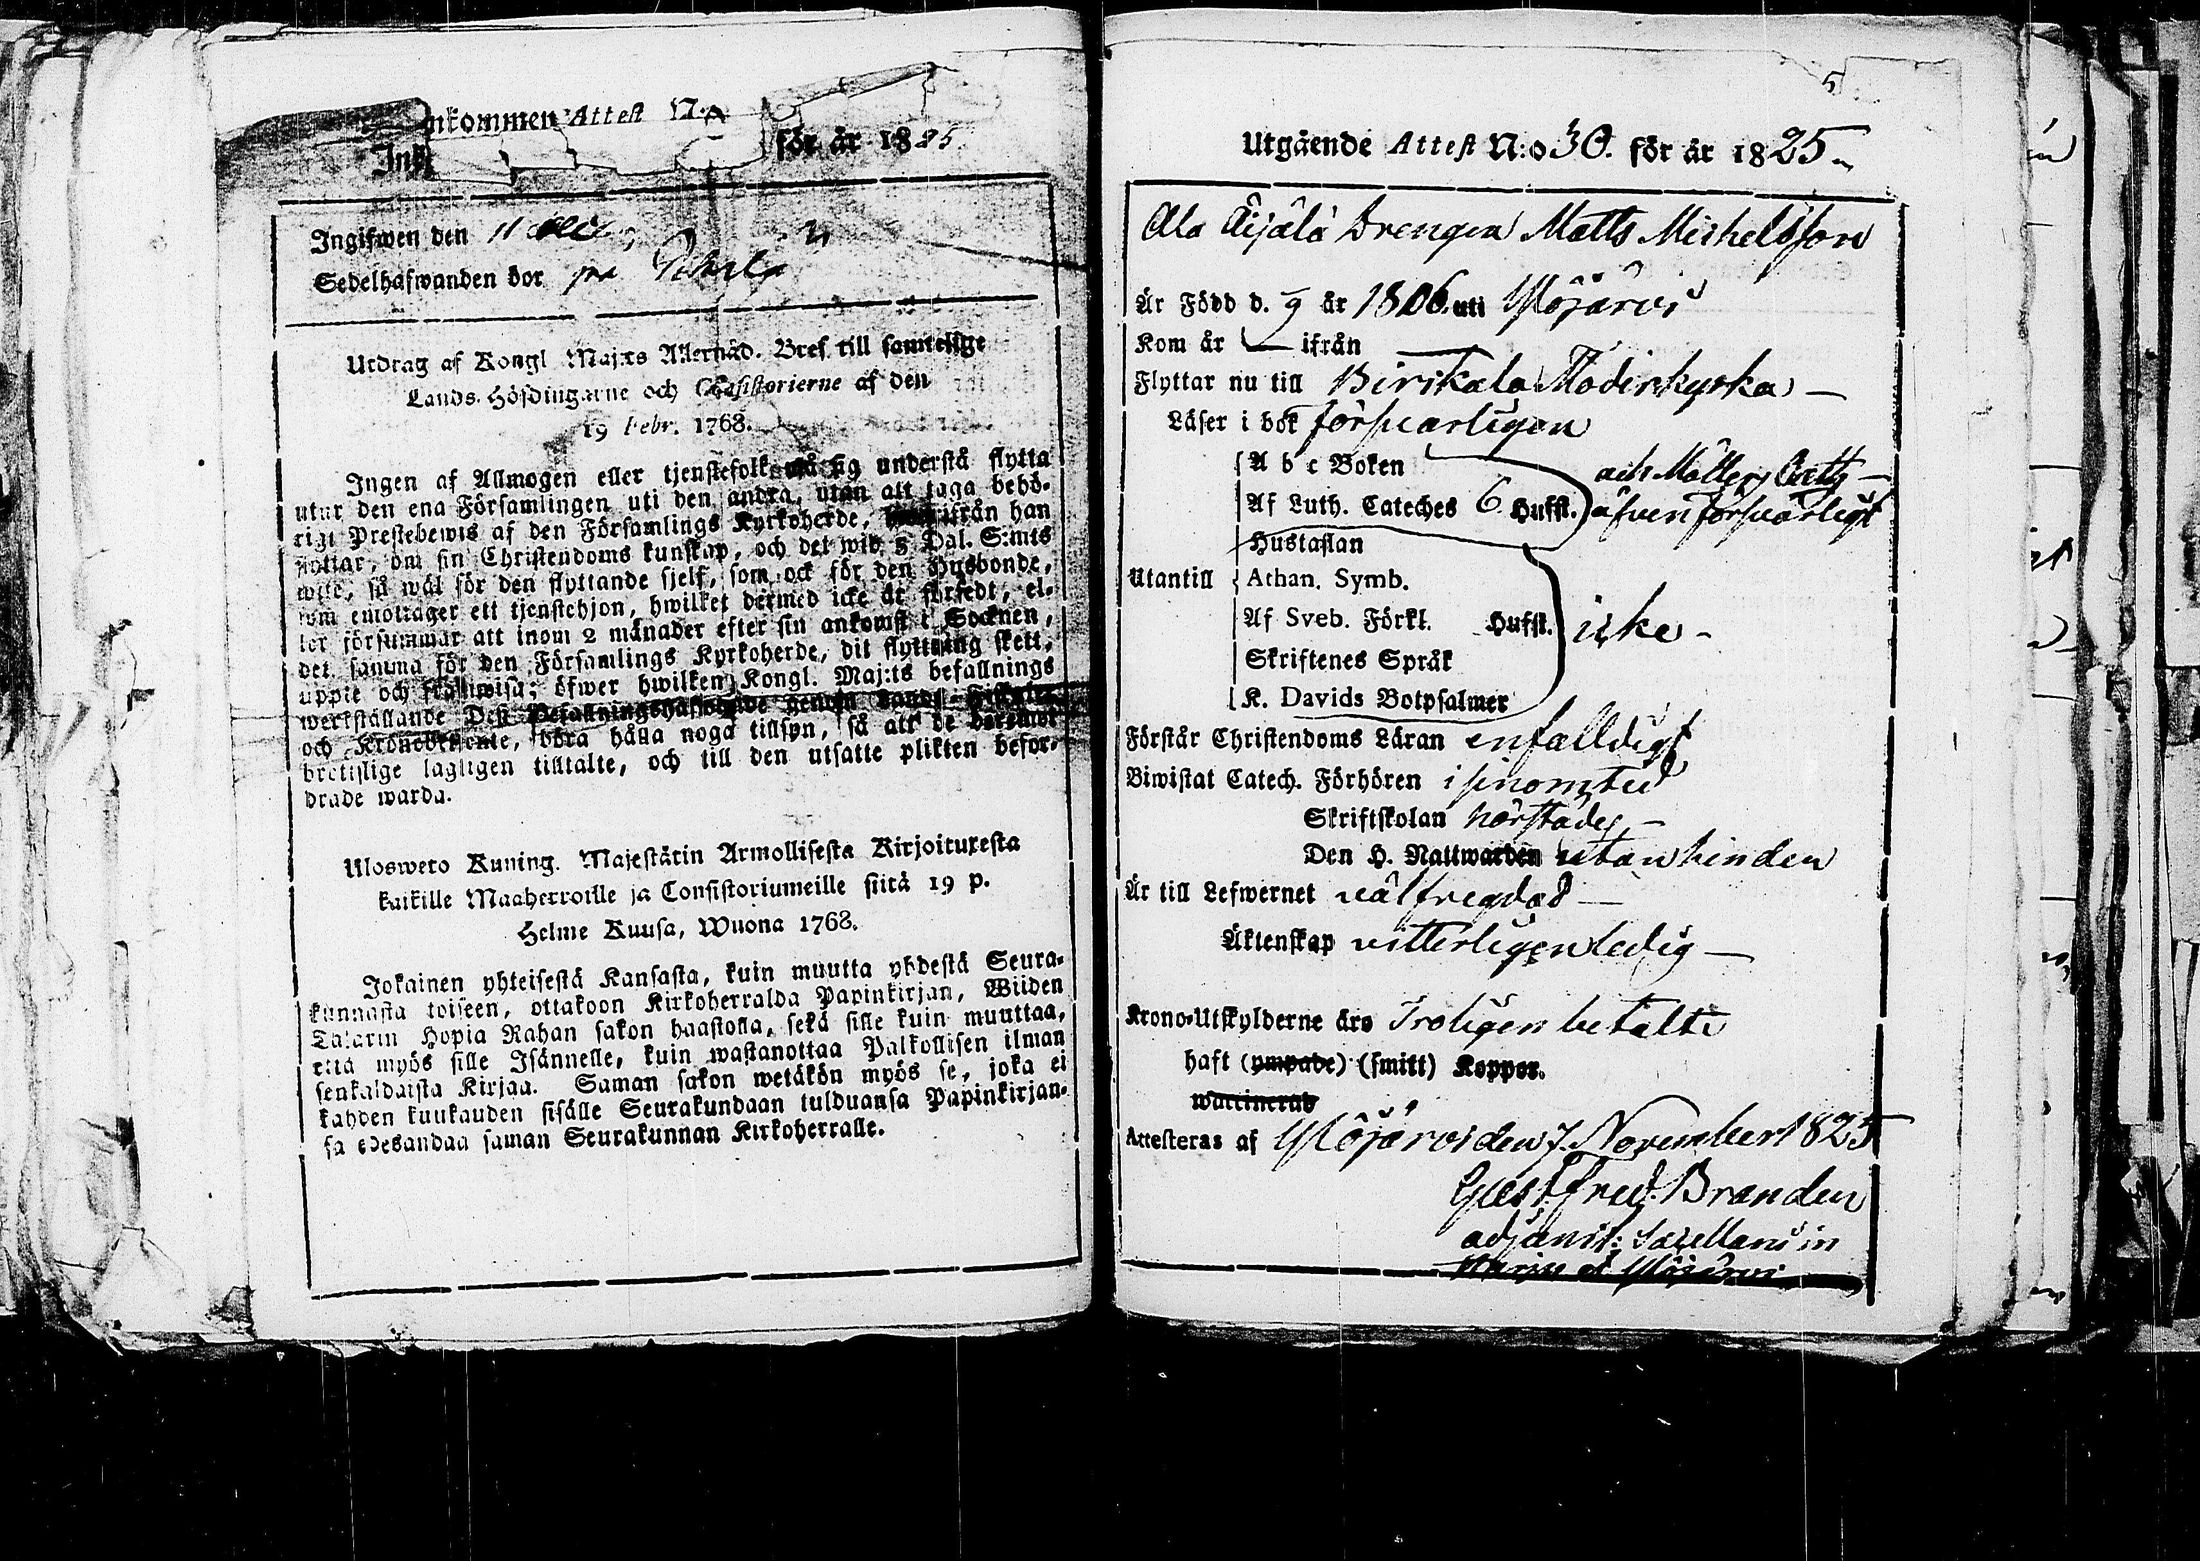 Inkommen Attest N:o
för år 1825.
Ingifwen den 11
Sedelhafwanden bor på
Utdrag af Kongl Maj:ts Allernåd. Bref till samtelige
Lands-Höfdingarne och Consistorierne af den
19 Febr. 1768.
Ingen af Allmogen eller tjenstefolk må sig understå flytta
utur den ena Församlingen uti den andra, utan att taga behö-
rigt Prestebewis af den Församlings Kyrkoherde, ifrån han
flyttar, om sin Christendoms kunskap, och det wid 5 Dal. S:mts
wite, så wäl för den flyttande sjelf, som ock för den Husbonde,
som emottager ett tjenstehjon, hwilket dermed icke är försedt, el-
ler försummar att inom 2 månader efter sin ankomst i Socknen,
det samma för den Församlings Kyrkoherde, dit flyttning skett,
uppte och framwisa; öfwer hwilken Kongl. Maj:ts befallnings
werkställande Dess Befallningshafwande genom Lands-Fiskaler
och Kronobetjente, böra hålla noga tillsyn, så att de
brottslige lagligen tilltalte, och till den utsatte plikten befor-
drade warda.
Uloswero Kuning. Majestätin Armollisesta Kirjoituxesta
kaikille Maaherroille ja Consistoriumeille siitä 19 p.
Helme Kuusa, Wuona 1768.
Jokainen yhteisestä Kansasta, kuin muutta yhdestä Seura-
kunnasta toiseen, ottakoon Kirkoherralda Papinkirjan, Wiiden
Talarin Hopia Rahan sakon haastolla, sekä sille kuin muuttaa,
että myös sille Isännelle, kuin wastanottaa Palkollisen ilman
senkaldaista Kirjaa. Saman sakon wetäkön myös se, joka ei
kahden kuukauden sisälle Seurakundaan tulduansa Papinkirjan-
sa edesandaa saman Seurakunnan Kirkoherralle.
5
Utgående Attest N:o 30. för år 1825
Ala Äijälä Drengen Matts Michelsson
Är Född d. 9 år 1806. uti Ylöjärvi
Kom år — ifrån —
Flyttar nu till Birikala Moderkyrka —
Läser i bok försvarligen
A b c Boken
och Möllers Catth —
Af Luth. Cateches 6 Hufst. äfven försvarligt
Hustaflan
Utantill Athan. Symb.
Af Sveb. Förkl. Hufst. icke —
Skriftenes Språk
K. Davids Botpsalmer
Förstår Christendoms Läran enfalldigt
Biwistat Catech. Förhören i sinom tid
Skriftskolan
Den H. Nattwarden utan hinder
Är till Lefwernet välfregdad —
Äktenskap vitterligen ledig —
Krono-Utskylderne äro Troligen betalte
haft (ympade) (smitt) Koppor.
waccinerad
Attesteras af Ylöjärvi den 7. November 1825
Gust. Fred. Brander
adjunct: Sacellani in
et Ylöjärvi